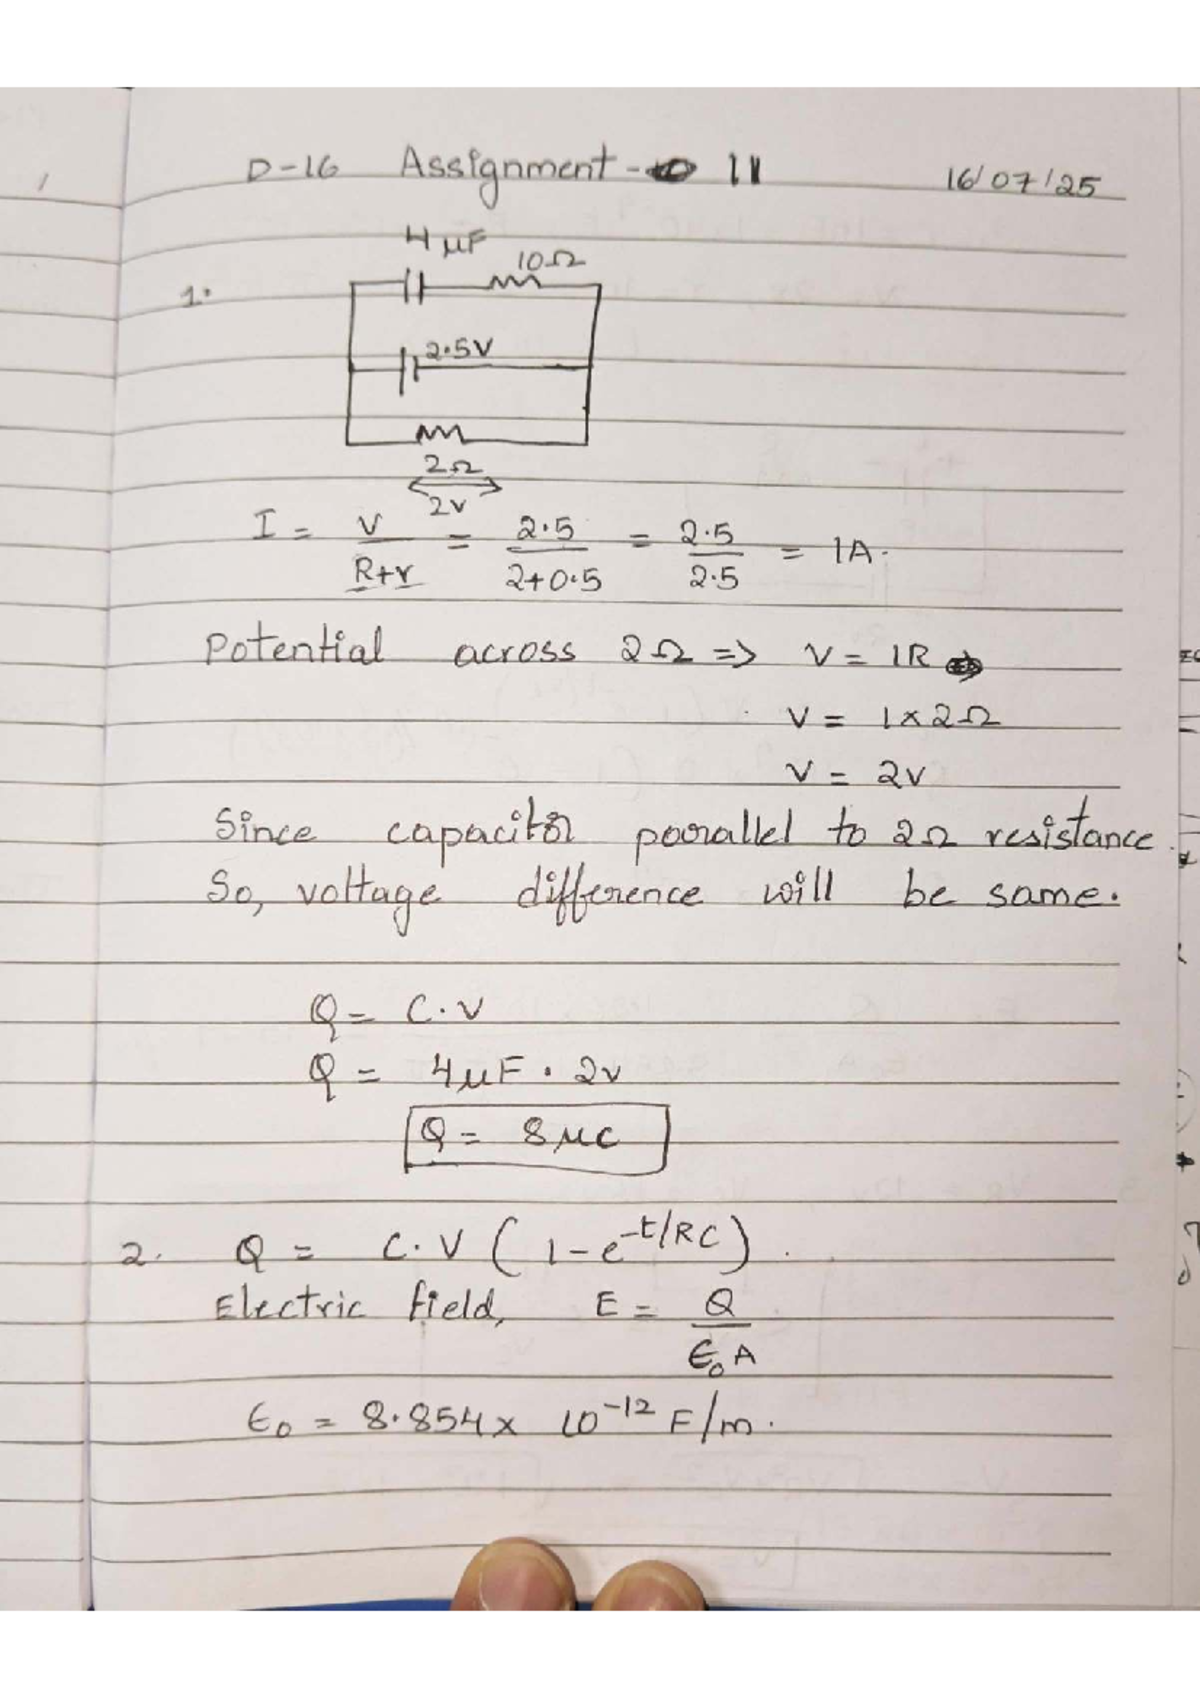 D-16 Assignment - 11 16/07/25
4 µF
10Ω
1.
2.5V
2Ω
2v
I = V/R+r = 2.5/2+0.5 = 2.5/2.5 = 1A.
Potential across 2Ω => V = IR
V = 1×2Ω
V = 2v
Since capacitor parallel to 2Ω resistance.
So, voltage difference will be same.
Q = C.V
Q = 4µF . 2v
Q = 8µC
2. Q = C.V (1-e^-t/RC).
Electric field, E = Q/ϵ₀A
ϵ₀ = 8.854 x 10^-12 F/m.